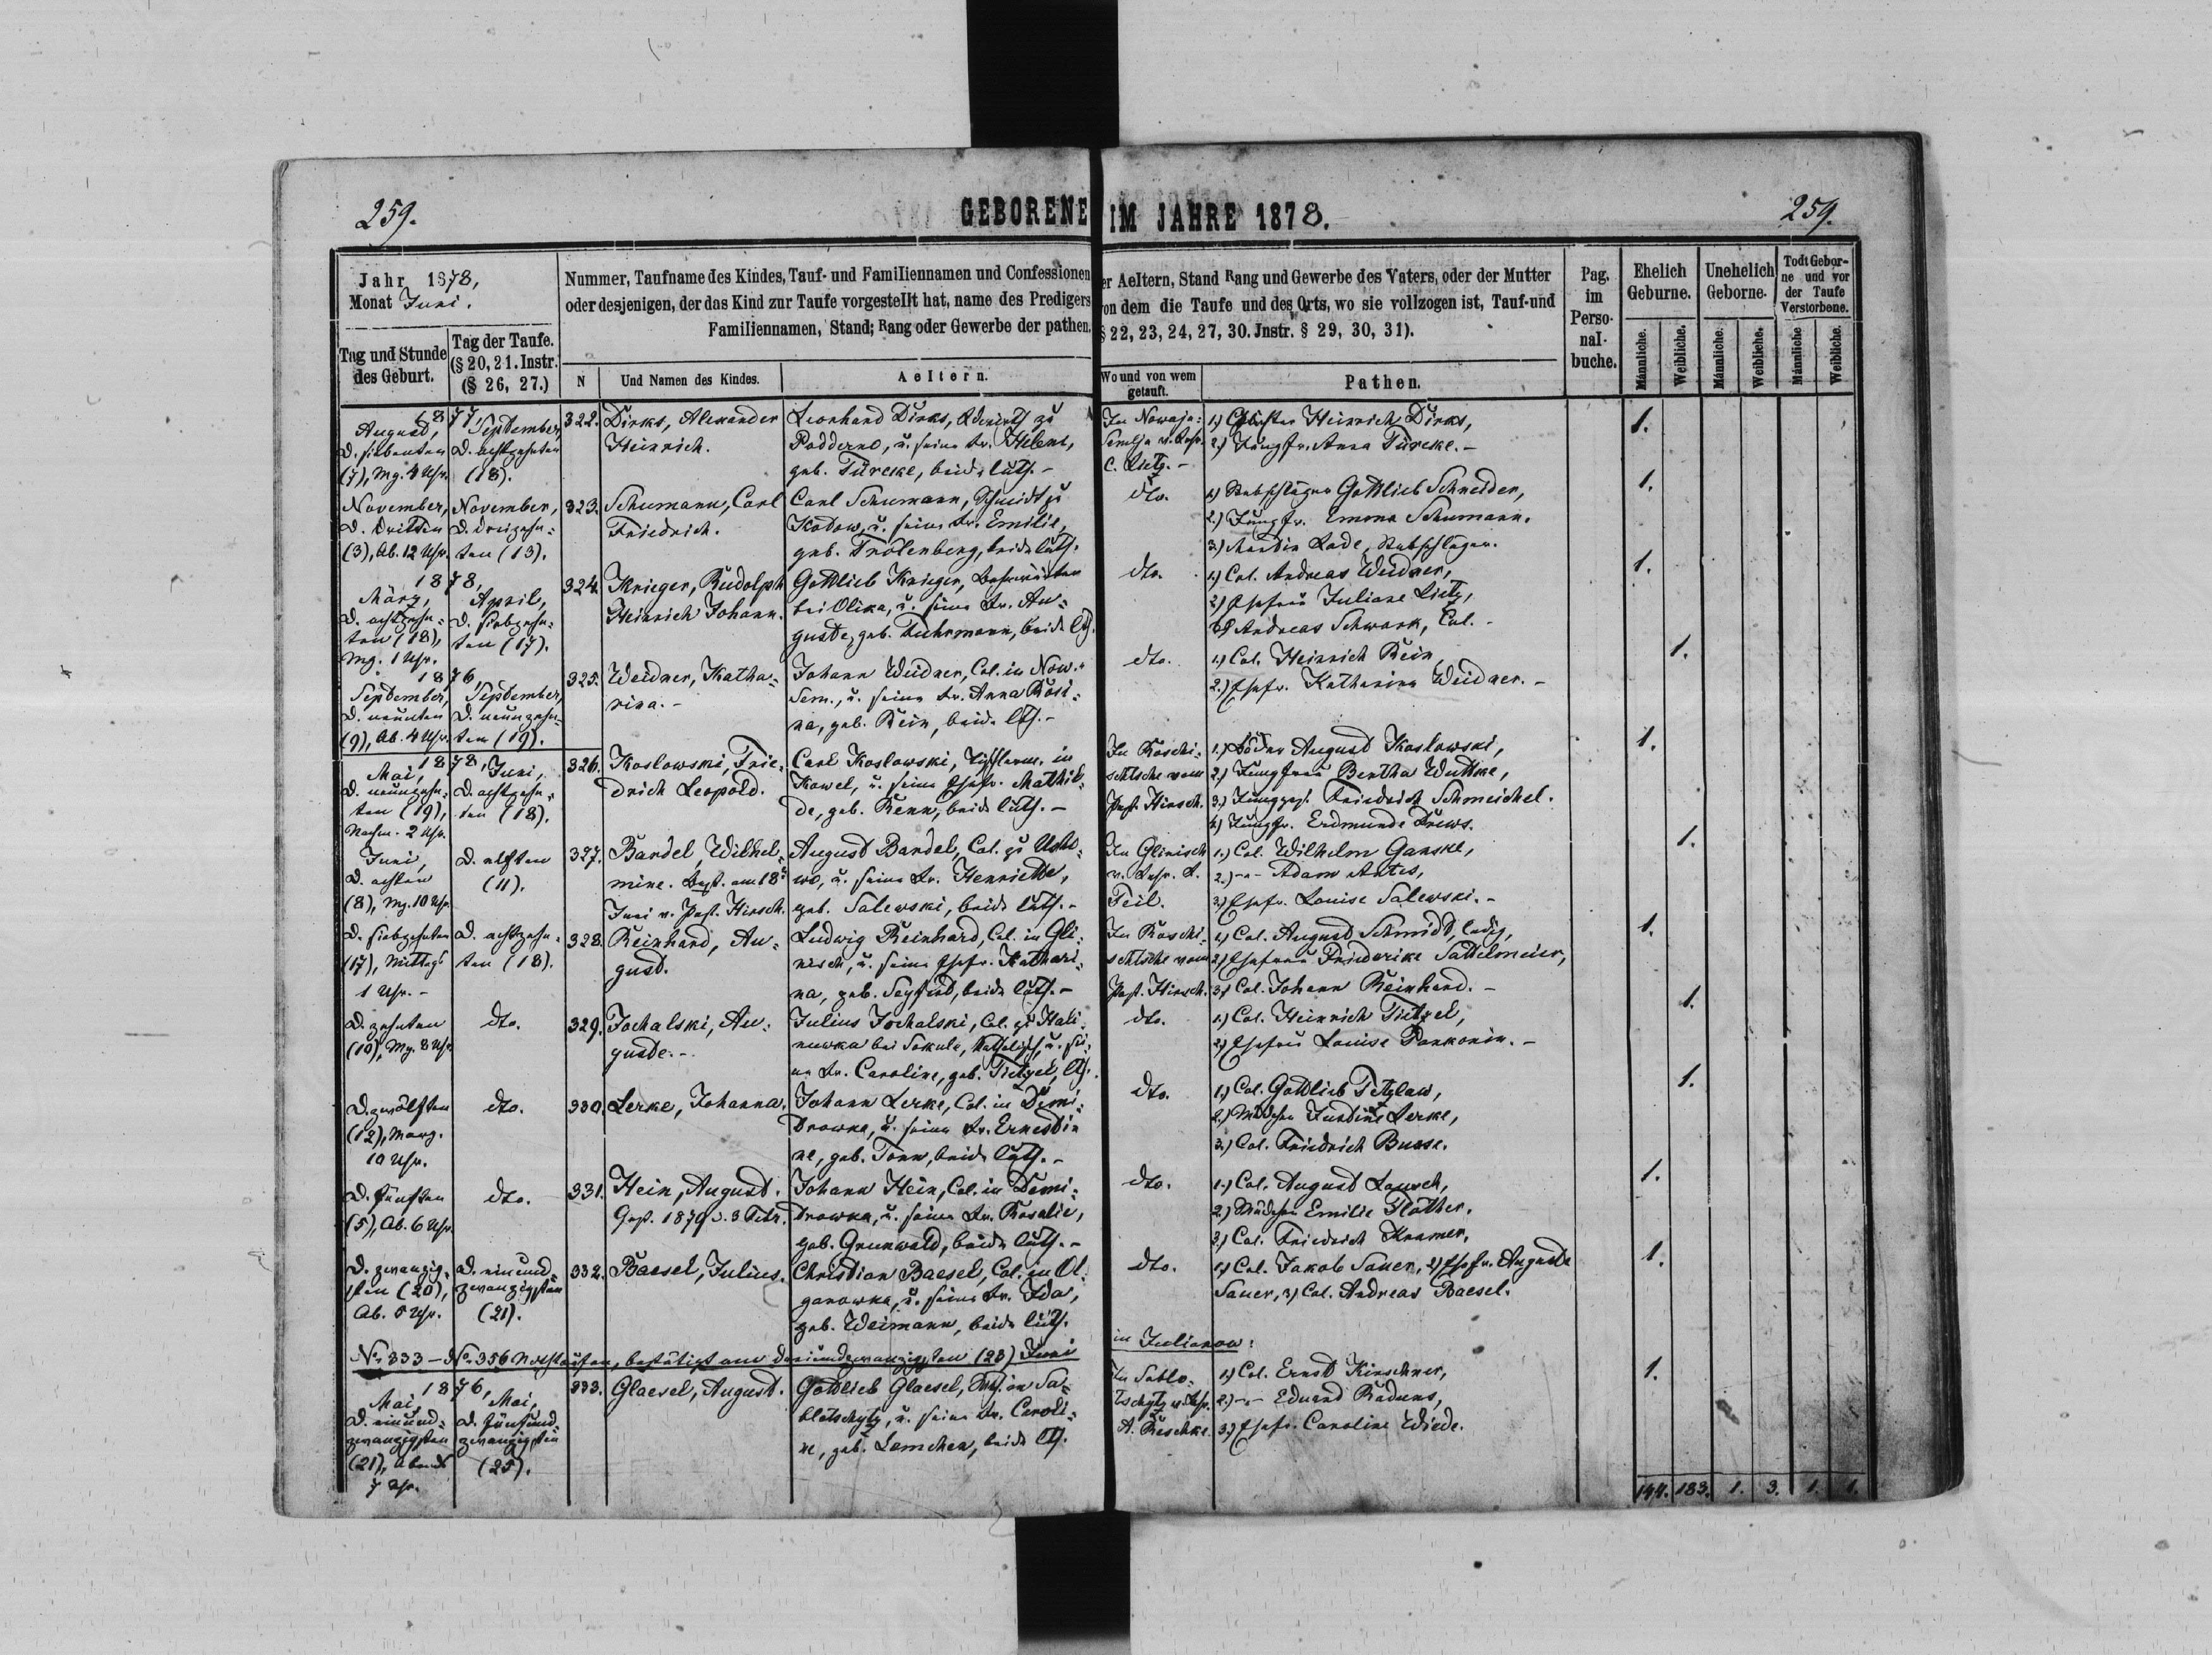 259.
GEBORENE IM JAHRE 1878.
259.
Jahr 1878,
Monat Juni.
Nummer, Taufname des Kindes, Tauf- und Familiennamen und Confessionen
oder desjenigen, der das Kind zur Taufe vorgestellt hat, name des Predigers
Familiennamen, Stand; Rang oder Gewerbe der pathen.
er Aeltern, Stand Rang und Gewerbe des Vaters, oder der Mutter
von dem die Taufe und des Orts, wo sie vollzogen ist, Tauf-und
§ 22, 23, 24, 27, 30. Jnstr. § 29, 30, 31).
Pag.
im
Perso-
nal-
buche.
Ehelich
Geburne.
Unehelich
Geborne.
Todt Gebor-
ne und vor
der Taufe
Verstorbene.
Tag und Stunde
des Geburt.
Tag der Taufe.
(§ 20, 21. Instr.
(§ 26, 27.)
N
Und Namen des Kindes.
Aeltern.
Wo und von wem
getauft.
Pathen.
Männliche.
Weibliche.
Männliche.
Weibliche.
Männliche
Weibliche.
1877,
August,
D. siebenten
(7), Mg. 4 Uhr.
September,
D. achtzehnten
(18).
322.
Dirks, Alexander
Heinrich.
Leonhard Dirks, zu
Podderno, u. seine Fr. Helene,
geb. Türcke, beide luth. -
In Nowaja-
Semlja v. Lehr.
C. Lietz. -
1.) Heinrich Dirks,
2.) Jungfr. Anna Türcke. -
1.
November,
D. dritten
(3), Ab. 12 Uhr.
November,
D. dreizehn-
ten (13).
323.
Schumann, Carl
Friedrich.
Carl Schumann, Schmidt zu
Kodow, u. seine Fr. Emilie,
geb. Trölenberg, beide luth.
dto.
1.) Stabschläger Gottlieb Schneider,
2.) Jungfr. Emma Schumann.
3.) Martin Lade, Stabschläger.
1.
1878,
März,
D. achtzehn-
ten (18),
Mg. 1 Uhr.
April,
D. siebzehn-
ten (17).
324.
Krieger, Rudolph
Heinrich Johann.
Gottlieb Krieger,
bei Olika, u. seine Fr. Au-
guste, geb. Fuhrmann, beide lth.
dto.
1.) Col. Andreas Weidner,
2.) Ehefrau Juliane Lietz,
3.) Andreas Schwark, Col. -
1.
1876,
September,
D. neunten
(9), Ab. 4 Uhr.
September,
D. neunzehn-
ten (19).
325.
Weidner, Katha-
rina. -
Johann Weidner, Col. in Now.-
Sem., u. seine Fr. Anna Rosi-
na, geb. Rein, beide lth. -
dto.
1.) Col. Heinrich Rein,
2.) Ehefr. Katharina Weidner. -
1.
1878,
Mai,
D. neunzehn-
ten (19),
Nachm. 2 Uhr.
Juni,
D. achtzehn-
ten (18).
326.
Koslowski, Frie-
drich Leopold.
Carl Koslowski, Tischlerm. in
Kowel, u. seine Ehefr. Mathil-
de, geb. Renn, beide luth. -
In Roschi-
schtsche vom
Past. Hirsch.
1.) August Koslowski,
2.) Jungfrau Bertha Wuttke,
3.) Jungges. Friedrich Schmeichel.
4.) Jungfr. Erdmunde Drews.
1.
Juni,
D. achten
(8), Mg. 10 Uhr.
D. elften
(11).
327.
Bandel, Wilhel-
mine. Best. am 18ten
Juni v. Past. Hirsch.
August Bandel, Col. zu
wo, u. seine Fr. Henriette,
geb. Salewski, beide luth. -
In Glinisch
v. Lehr. A.
Teil.
1.) Col. Wilhelm Ganske,
2.) -"- Adam Antes,
3.) Ehefr. Louise Salewski. -
1.
D. siebzehnten
(17), Mittags
1 Uhr. -
D. achtzehn-
ten (18).
328.
Reinhard, Au-
gust.
Ludwig Reinhard, Col. in Gli-
nisch, u. seine Ehefr. Kathari-
na, geb. Seyfried, beide luth. -
In Roschi-
schtsche vom
Past. Hirsch.
1.) Col. August Schmidt, ledig,
2.) Ehefrau Friederike Sattelmeier,
3.) Col. Johann Reinhard. -
1.
D. zehnten
(10), Mg. 8 Uhr.
dto.
329.
Jochalski, Au-
guste. -
Julius Jochalski, Col. zu Hali-
nuwka bei Sokule, Katholisch, u. sei-
ne Fr. Caroline, geb. Tietzel, lth.
dto.
1.) Col. Heinrich Tietzel,
2.) Ehefrau Louise Pankonin. -
1.
D. zwölften
(12), Morg.
10 Uhr.
dto.
330.
Lerke, Johanna.
Johann Lerke, Col. in Demi-
drowka, u. seine Fr. Ernesti-
ne, geb. Tonn, beide luth. -
dto.
1.) Col. Gottlieb Tetzlaw,
2.) Mädchen Justine Lerke,
3.) Col. Friedrich Busse.
1.
D. fünften
(5), Ab. 6 Uhr.
dto.
331.
Hein, August.
Gest. 1879 d. 3 Febr.
Johann Hein, Col. in Demi-
drowka, u. seine Fr. Rosalie,
geb. Grunwald, beide luth. -
dto.
1.) Col. August Lausch,
2.) Mädchen Emilie Flather,
3.) Col. Friedrich Kramer,
1.
D. zwanzig-
sten (20),
Ab. 5 Uhr.
D. einund-
zwanzigsten
(21).
332.
Baesel, Julius.
Christian Baesel, Col. in Ol-
ganowka, u. seine Fr. Ida,
geb. Weimann, beide luth.
dto.
1.) Col. Jakob Sauer, 2.) Ehefr. Auguste
Sauer, 3.) Col. Andreas Baesel.
1.
No. 333 - No. 356 Nothtaufen, bestätigt am dreiundzwanzigsten (23) Juni
in Julianow:
1876,
Mai,
D. einund-
zwanzigsten
(21), Abends
7 Uhr.
Mai,
D. fünfund-
zwanzigsten
(25).
333.
Glaesel, August.
Gottlieb Glaesel, in Sa-
blotschytz, u. seine Fr. Caroli-
ne, geb. Lemchen, beide lth.
In Sablo-
tschytz v. Lehr.
A. Reschke.
1.) Col. Ernst Kirschner,
2.) -"- Eduard Raduns,
3.) Ehefr. Caroline Wiede.
1.
144. 183. 1. 3. 1. 1.